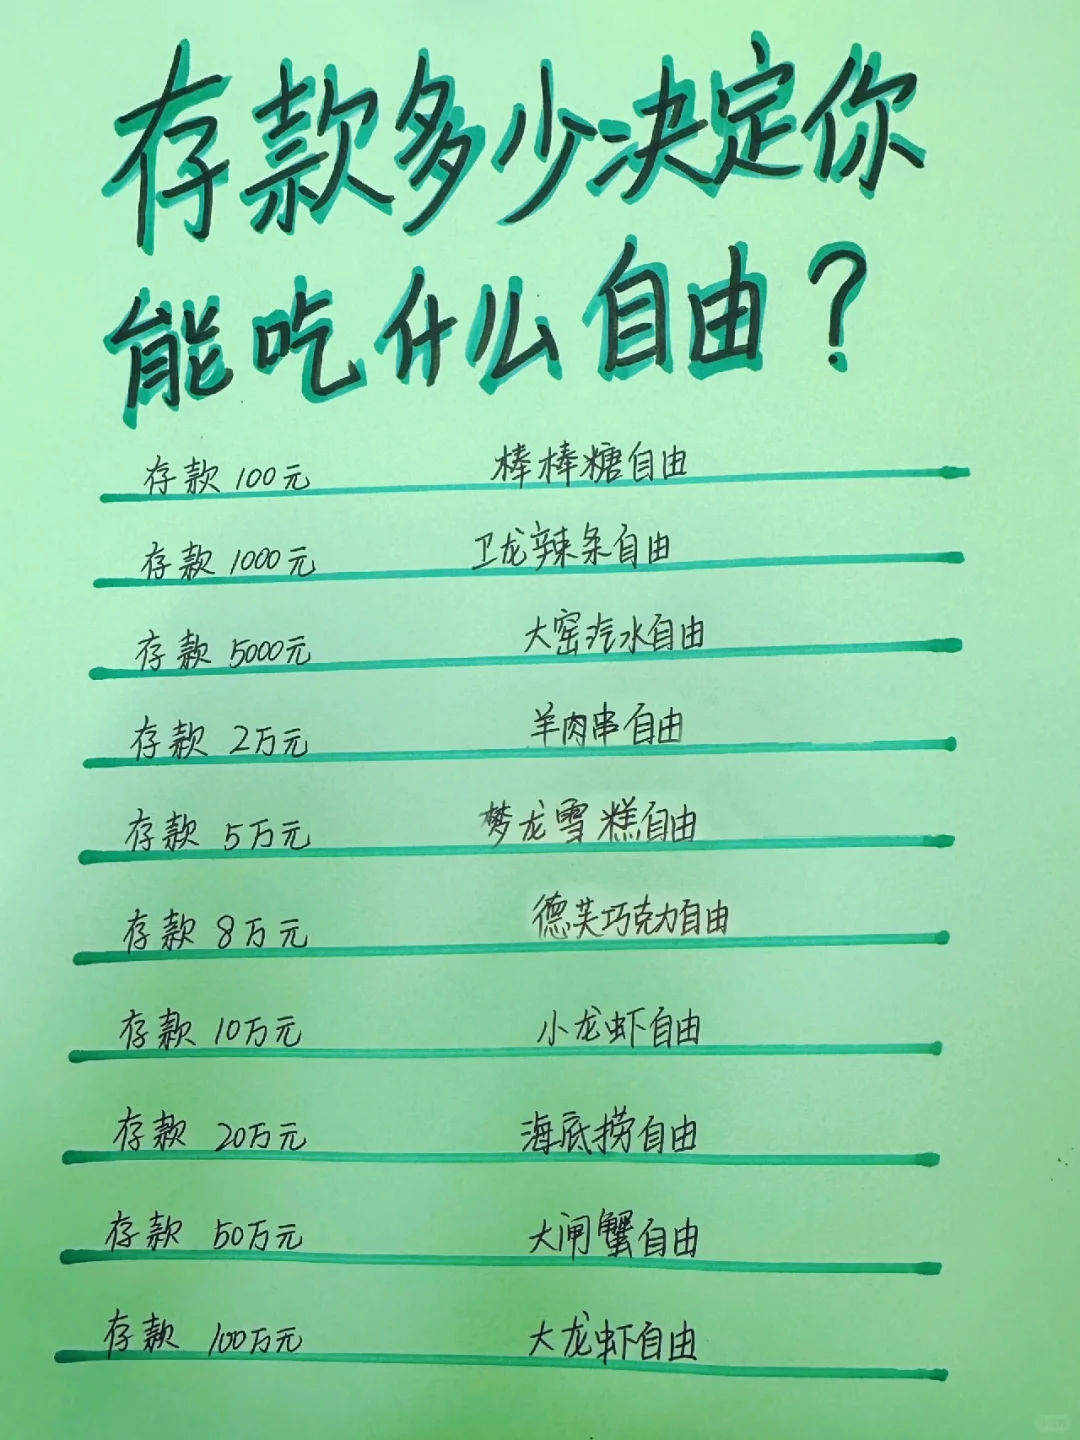 存款多少决定你
能吃什么自由？
存款 100元 棒棒糖自由
存款 1000元 卫龙辣条自由
存款 5000元 大窑汽水自由
存款 2万元 羊肉串自由
存款 5万元 梦龙雪糕自由
存款 8万元 德芙巧克力自由
存款 10万元 小龙虾自由
存款 20万元 海底捞自由
存款 50万元 大闸蟹自由
存款 100万元 大龙虾自由